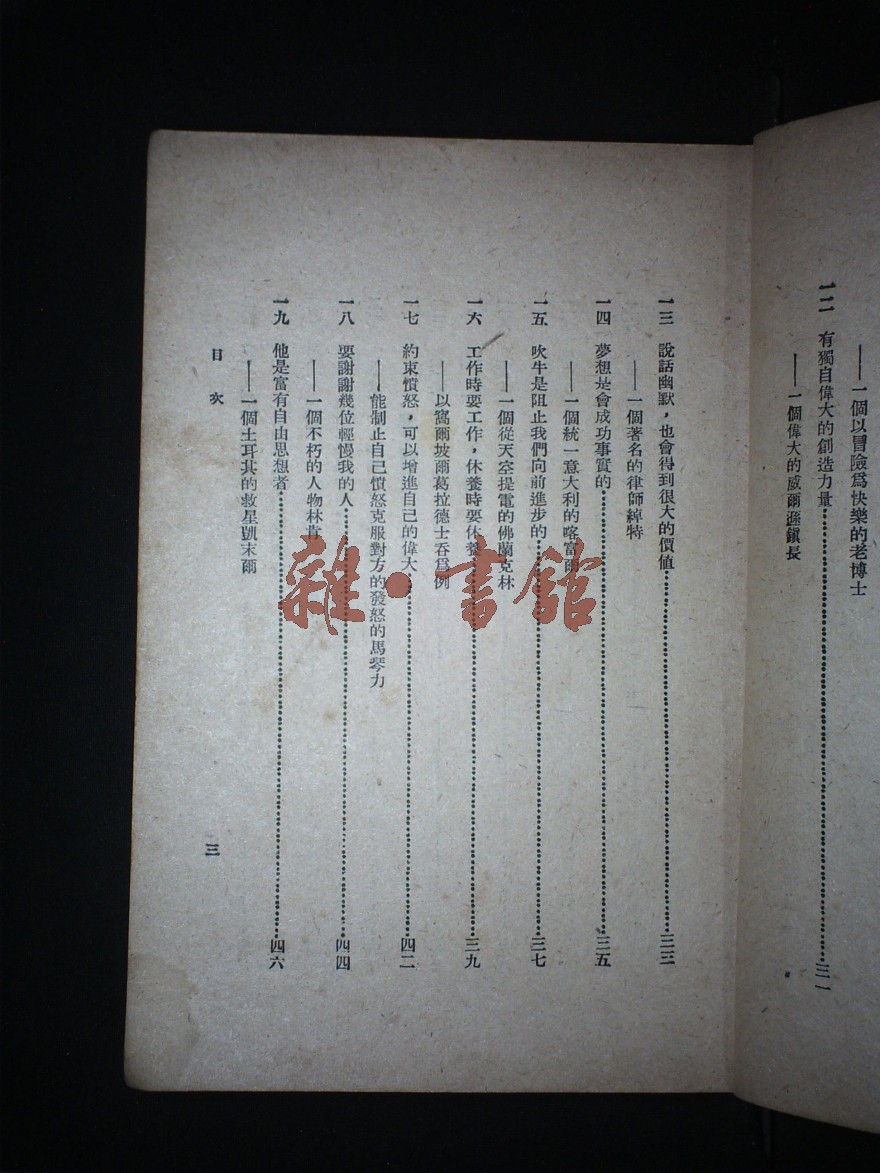 ——一個以冒險爲快樂的老博士
一二 有獨自偉大的創造力量…………三一
——一個偉大的威爾遜鎭長
一三 說話幽默，也會得到很大的價値…………三三
——一個著名的律師綽特
一四 夢想是會成功事質的…………三五
——一個統一意大利的喀富爾
一五 吹牛是阻止我們向前進步的…………三七
——一個從天空提電的佛蘭克林
一六 工作時要工作，休養時要休養…………三九
——以窩爾坡爾葛拉德士吞爲例
一七 約束憤怒，可以增進自己的偉大…………四二
——能制止自己憤怒克服對方的發怒的馬琴力
一八 要謝謝幾位輕慢我的人…………四四
——一個不朽的人物林肯
一九 他是富有自由思想者…………四六
——一個土耳其的救星凱末爾
目次
三
雜·書館